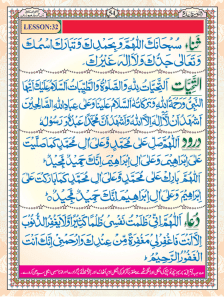 54
LESSON:32
ثناء سُبْحَانَكَ اللّٰهُمَّ وَبِحَمْدِكَ وَتَبَارَكَ اسْمُكَ
وَتَعَالٰى جَدُّكَ وَلَا اِلٰهَ غَيْرُكَ
التحيات اَلتَّحِيَّاتُ لِلّٰهِ وَالصَّلَوَاتُ وَالطَّيِّبَاتُ اَلسَّلَامُ عَلَيْكَ اَيُّهَا
النَّبِيُّ وَرَحْمَةُ اللّٰهِ وَبَرَكَاتُهُ اَلسَّلَامُ عَلَيْنَا وَعَلٰى عِبَادِ اللّٰهِ الصَّالِحِيْنَ
اَشْهَدُ اَنْ لَّا اِلٰهَ اِلَّا اللّٰهُ وَاَشْهَدُ اَنَّ مُحَمَّدًا عَبْدُهُ وَرَسُوْلُهُ
درود اَللّٰهُمَّ صَلِّ عَلٰى مُحَمَّدٍ وَّعَلٰى اٰلِ مُحَمَّدٍ كَمَا صَلَّيْتَ
عَلٰى اِبْرَاهِيْمَ وَعَلٰى اٰلِ اِبْرَاهِيْمَ اِنَّكَ حَمِيْدٌ مَّجِيْدٌ
اَللّٰهُمَّ بَارِكْ عَلٰى مُحَمَّدٍ وَّعَلٰى اٰلِ مُحَمَّدٍ كَمَا بَارَكْتَ عَلٰى
اِبْرَاهِيْمَ وَعَلٰى اٰلِ اِبْرَاهِيْمَ اِنَّكَ حَمِيْدٌ مَّجِيْدٌ
دعاء اَللّٰهُمَّ اِنِّيْ ظَلَمْتُ نَفْسِيْ ظُلْمًا كَثِيْرًا وَّلَا يَغْفِرُ الذُّنُوْبَ
اِلَّا اَنْتَ فَاغْفِرْ لِيْ مَغْفِرَةً مِّنْ عِنْدِكَ وَارْحَمْنِيْ اِنَّكَ اَنْتَ
الْغَفُوْرُ الرَّحِيْمُ